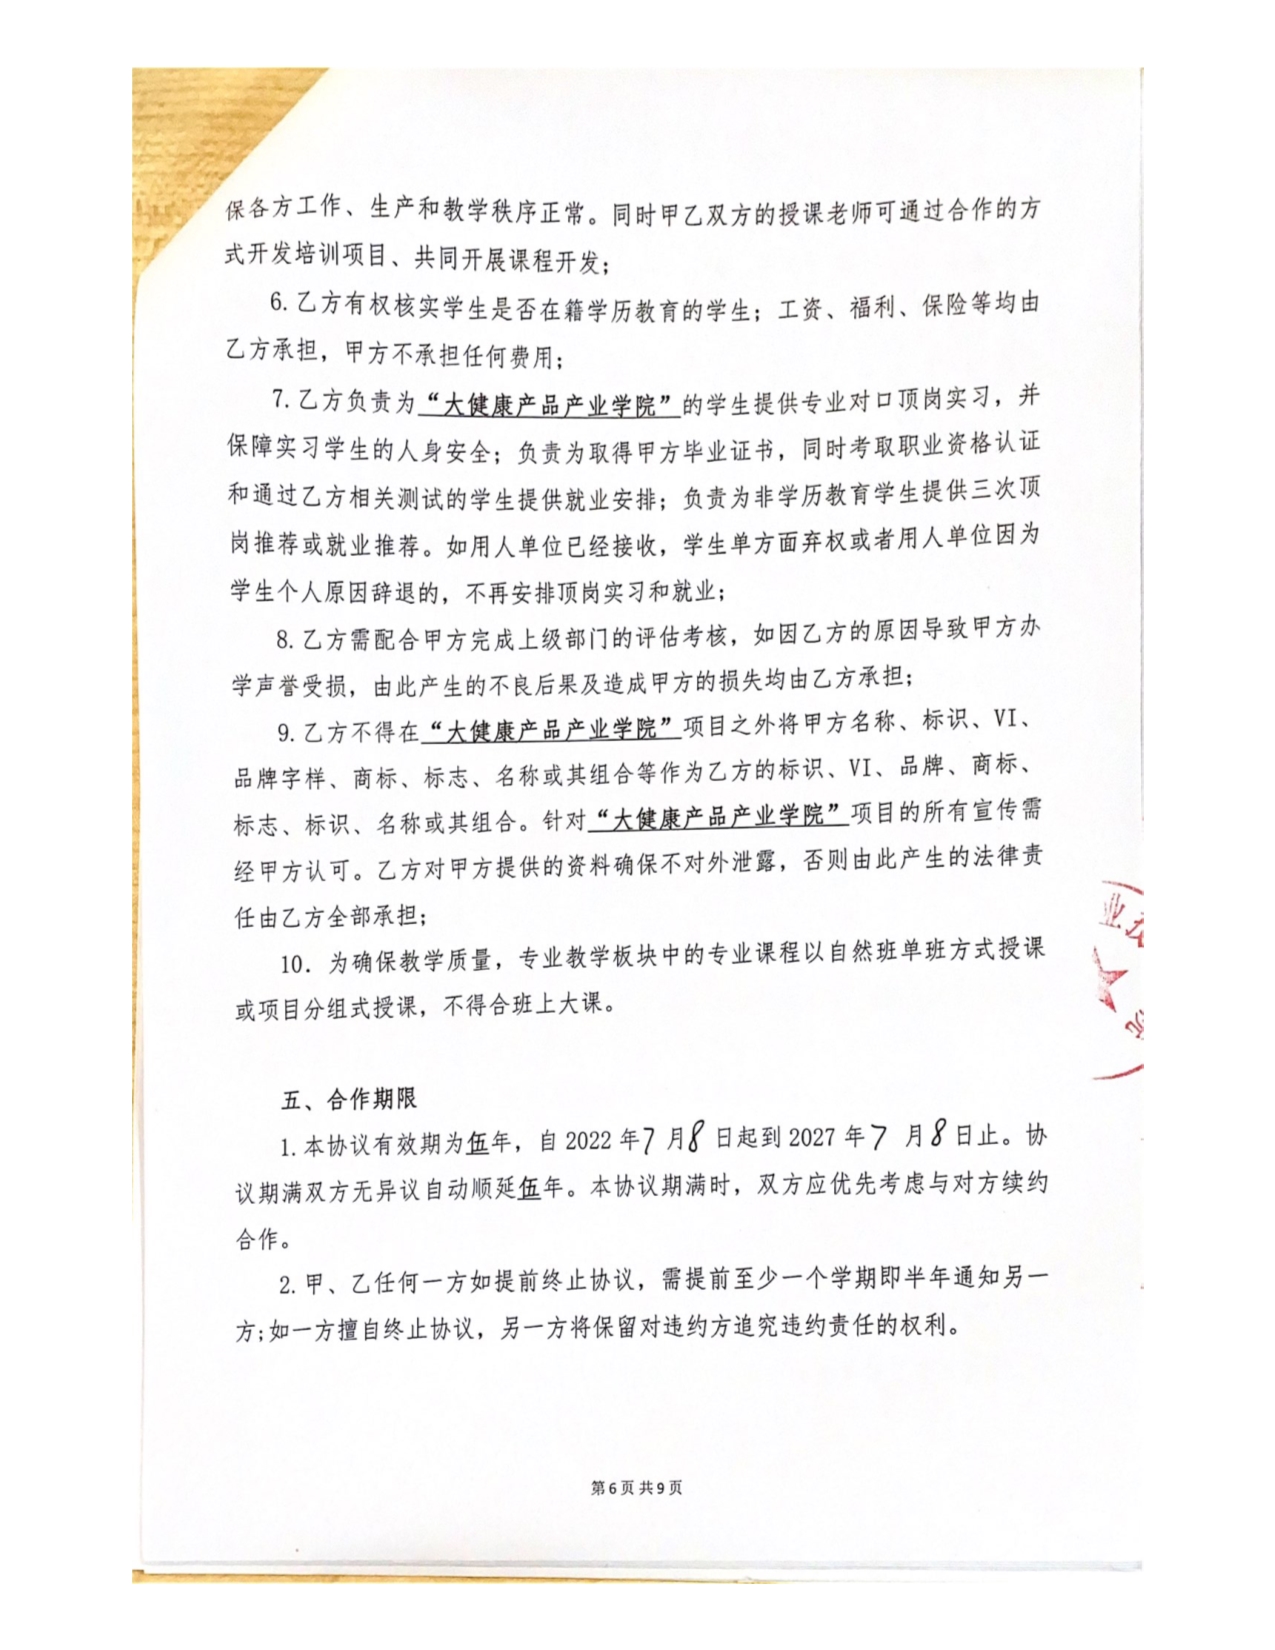 保各方工作、生产和教学秩序正常。同时甲乙双方的授课老师可通过合作的方
式开发培训项目、共同开展课程开发；
6.乙方有权核实学生是否在籍学历教育的学生；工资、福利、保险等均由
乙方承担，甲方不承担任何费用；
7.乙方负责为“大健康产品产业学院”的学生提供专业对口顶岗实习，并
保障实习学生的人身安全；负责为取得甲方毕业证书，同时考取职业资格认证
和通过乙方相关测试的学生提供就业安排；负责为非学历教育学生提供三次顶
岗推荐或就业推荐。如用人单位已经接收，学生单方面弃权或者用人单位因为
学生个人原因辞退的，不再安排顶岗实习和就业；
8.乙方需配合甲方完成上级部门的评估考核，如因乙方的原因导致甲方办
学声誉受损，由此产生的不良后果及造成甲方的损失均由乙方承担；
9.乙方不得在“大健康产品产业学院”项目之外将甲方名称、标识、VI、
品牌字样、商标、标志、名称或其组合等作为乙方的标识、VI、品牌、商标、
标志、标识、名称或其组合。针对“大健康产品产业学院”项目的所有宣传需
经甲方认可。乙方对甲方提供的资料确保不对外泄露，否则由此产生的法律责
任由乙方全部承担；
10．为确保教学质量，专业教学板块中的专业课程以自然班单班方式授课
或项目分组式授课，不得合班上大课。
五、合作期限
1.本协议有效期为伍年，自2022年7月8日起到2027年7月8日止。协
议期满双方无异议自动顺延伍年。本协议期满时，双方应优先考虑与对方续约
合作。
2.甲、乙任何一方如提前终止协议，需提前至少一个学期即半年通知另一
方;如一方擅自终止协议，另一方将保留对违约方追究违约责任的权利。
第6页共9页
业技
院